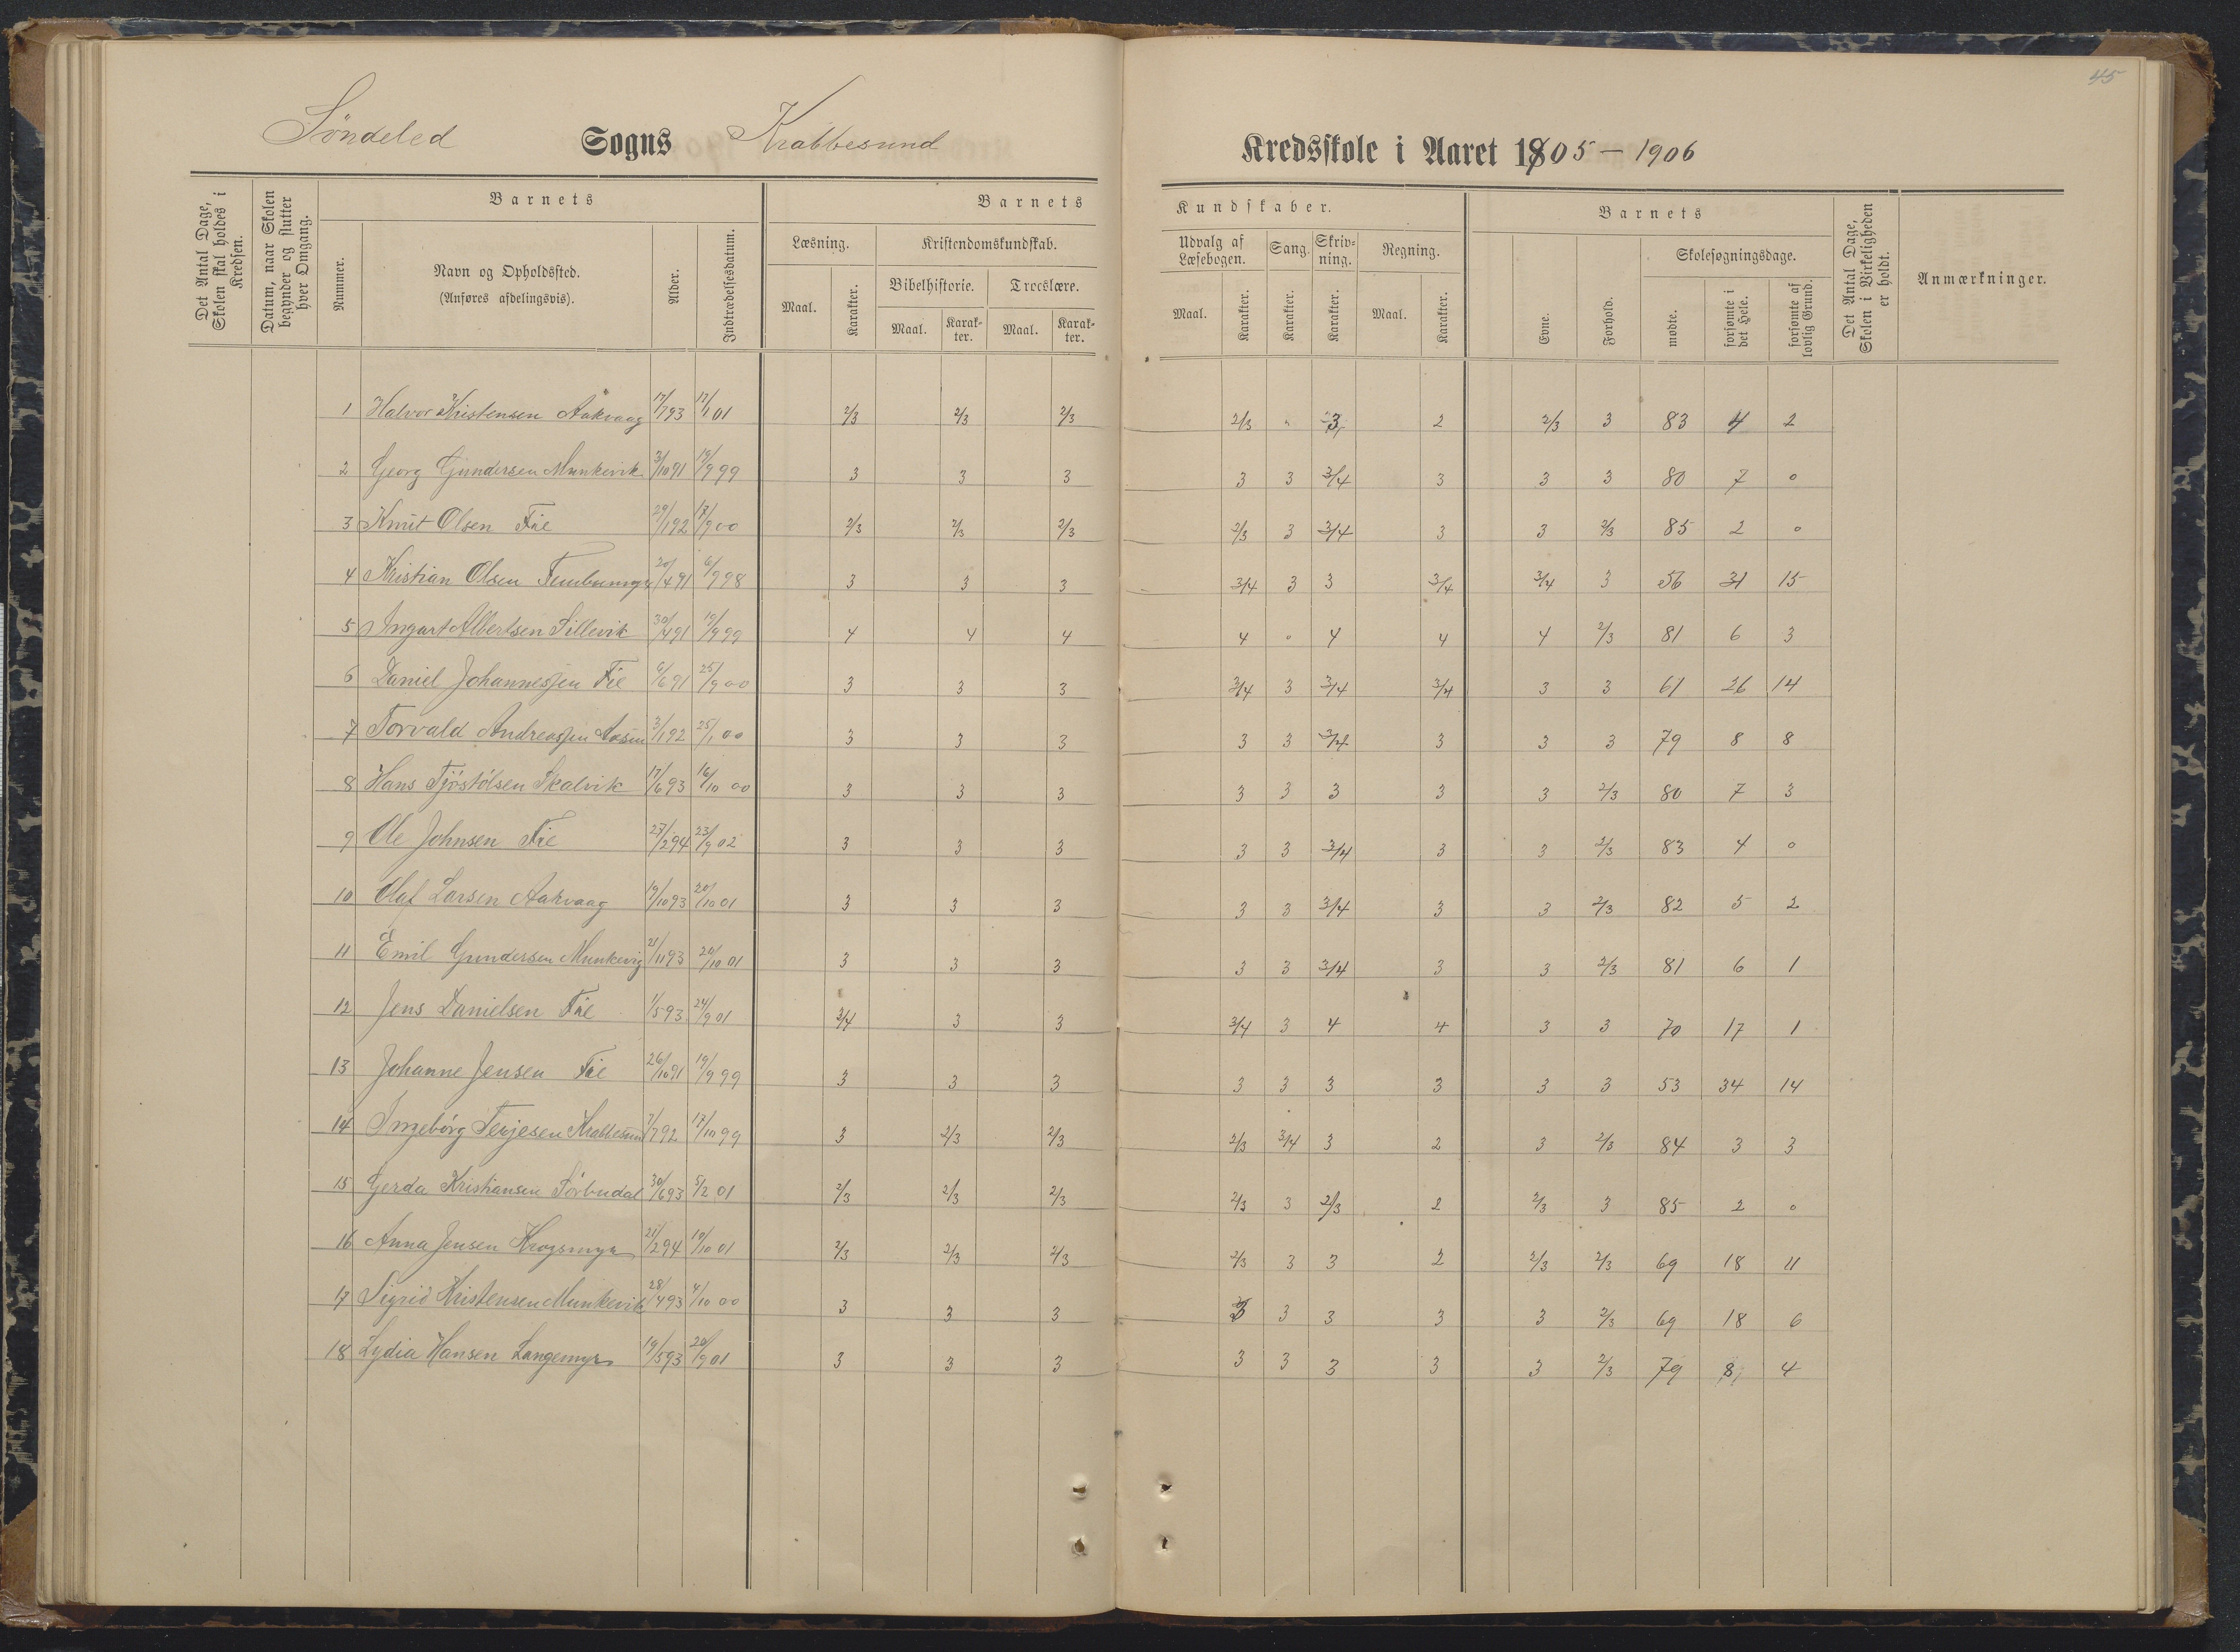 45
Söndeled Sogns Krabbesund Kredsskole i Aaret 1905 – 1906
Det Antal Dage, Skolen skal holdes i Kredsen.
Datum, naar Skolen begynder og slutter hver Omgang.
Barnets
Nummer.
Navn og Opholdssted.
(Anføres afdelingsvis).
Alder.
Indtrædelsesdatum.
Barnets Kundskaber.
Læsning.
Maal. Karakter.
Kristendomskundskab.
Bibelhistorie. Troeslære.
Maal. Karak-ter. Maal. Karak-ter.
Udvalg af Læsebogen.
Maal. Karakter.
Sang. Karakter.
Skriv-ning. Karakter.
Regning.
Maal. Karakter.
Barnets
Evne. Forhold.
Skolesøgningsdage.
mødte. forsømte i det Hele. forsømte af lovlig Grund.
Det Antal Dage, Skolen i Virkeligheden er holdt.
Anmærkninger.
1 Halvor Kristensen Aakvaag 17/7 93 17/1 01 2/3 2/3 2/3 2/3 " 3 2 2/3 3 83 4 2
2 Georg Gundersen Munkevik 3/10 91 19/9 99 3 3 3 3 3 3/4 3 3 3 80 7 0
3 Knut Olsen Fie 29/1 92 17/9 00 2/3 2/3 2/3 2/3 3 3/4 3 3 2/3 85 2 0
4 Kristian Olsen 20/4 91 6/9 98 3 3 3 3/4 3 3 3/4 3/4 3 56 31 15
5 Ingart Albertsen Sillevik 30/4 91 19/9 99 4 4 4 4 0 4 4 4 2/3 81 6 3
6 Daniel Johannessen Fie 6/6 91 25/9 00 3 3 3 3/4 3 3/4 3/4 3 3 61 26 14
7 Torvald Andreassen Aasen 3/1 92 25/1 00 3 3 3 3 3 3/4 3 3 3 79 8 8
8 Hans Tjöstölsen Skalvik 17/6 93 16/10 00 3 3 3 3 3 3 3 3 2/3 80 7 3
9 Ole Johnsen Fie 27/2 94 23/9 02 3 3 3 3 3 3/4 3 3 2/3 83 4 0
10 Olaf Larsen Aakvaag 19/10 93 20/10 01 3 3 3 3 3 3/4 3 3 2/3 82 5 2
11 Emil Gundersen Munkevig 21/11 93 20/10 01 3 3 3 3 3 3/4 3 3 2/3 81 6 1
12 Jens Danielsen Fie 1/5 93 24/9 01 3/4 3 3 3/4 3 4 4 3 3 70 17 1
13 Johanne Jensen Fie 26/10 91 19/9 99 3 3 3 3 3 3 3 3 3 53 34 14
14 Ingebörg Terjesen Krabbesund 7/7 92 17/10 99 3 2/3 2/3 2/3 3/4 3 2 3 2/3 84 3 3
15 Gerda Kristiansen Sörbudal 30/6 93 5/2 01 2/3 2/3 2/3 2/3 3 2/3 2 2/3 3 85 2 0
16 Anna Jensen Krogsmyr 21/2 94 19/10 01 2/3 2/3 2/3 2/3 3 3 2 2/3 2/3 69 18 11
17 Sigrid Kristensen Munkevik 28/4 93 4/10 00 3 3 3 3 3 3 3 3 2/3 69 18 6
18 Lydia Hansen Langemyr 19/5 93 20/9 01 3 3 3 3 3 3 3 3 2/3 79 8 4